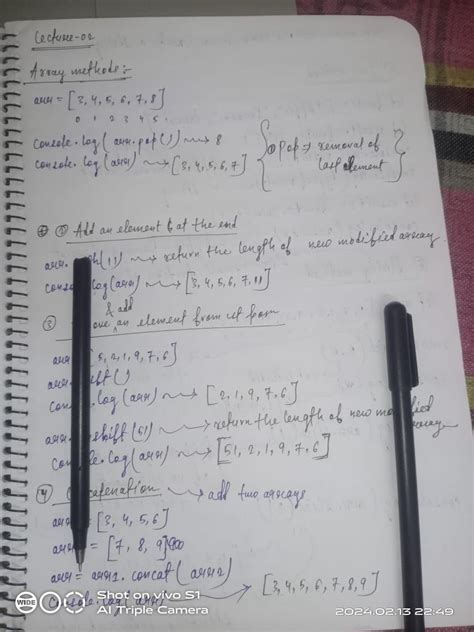 Lecture-02
Array methods:-
arr = [3, 4, 5, 6, 7, 8]
0 1 2 3 4 5
console.log(arr.pop()) → 8
console.log(arr) → [3, 4, 5, 6, 7]
Pop ⇒ removal of
last element
Add an element at the end
arr. (11) → return the length of new modified array
log(arr) → [3, 4, 5, 6, 7, 11]
& add
③ an element from
5, 2, 1, 9, 7, 6]
log(arr) → [2, 1, 9, 7, 6]
(51) → return the length of new modified
array
log(arr) → [51, 2, 1, 9, 7, 6]
④ → add two arrays
= [3, 4, 5, 6]
= [7, 8, 9]
arr = arr1.concat(arr2)
console.log(arr) → [3, 4, 5, 6, 7, 8, 9]
WIDE
Shot on vivo S1
AI Triple Camera
2024.02.13 22:49